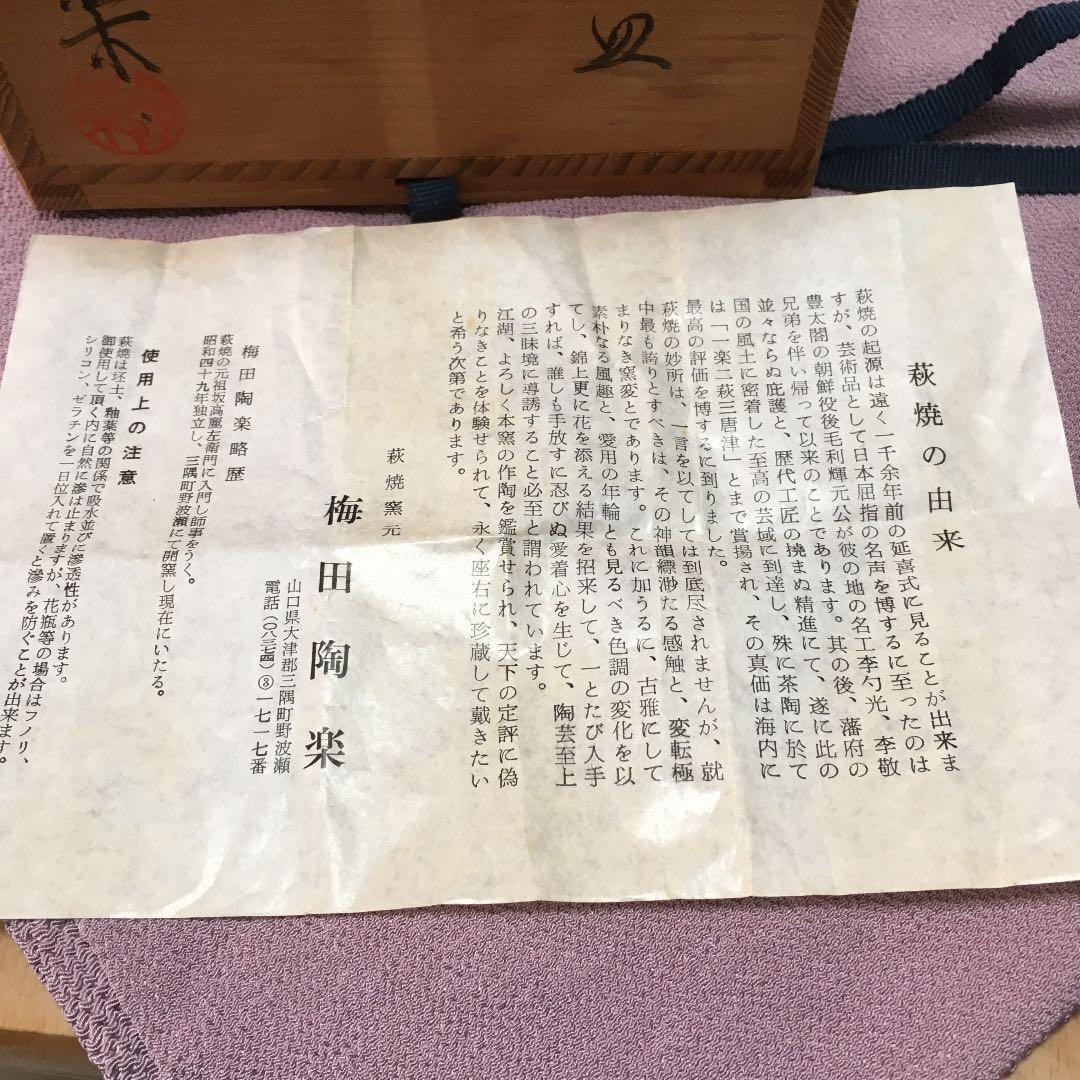 皿
楽
萩焼の由来
萩焼の起源は遠く一千余年前の延喜式に見ることが出来ま
すが、芸術品として日本屈指の名声を博するに至ったのは
豊太閤の朝鮮役後毛利輝元公が彼の地の名工李勺光、李敬
兄弟を伴い帰って以来のことであります。其の後、藩府の
並々ならぬ庇護と、歴代工匠の撓まぬ精進にて、遂に此の
国の風土に密着した至高の芸域に到達し、殊に茶陶に於て
は「一楽二萩三唐津」とまで賞揚され、その真価は海内に
最高の評価を博するに到りました。
萩焼の妙所は、一言を以てしては到底尽されませんが、就
中最も誇りとすべきは、その神韻縹渺たる感触と、変転極
まりなき窯変とであります。これに加うるに、古雅にして
素朴なる風趣と、愛用の年輪とも見るべき色調の変化を以
てし、錦上更に花を添える結果を招来して、一とたび入手
すれば、誰しも手放すに忍びぬ愛着心を生じて、陶芸至上
の三昧境に導誘すること必至と謂われています。
江湖、よろしく本窯の作陶を鑑賞せられ、天下の定評に偽
りなきことを体験せられて、永く座右に珍蔵して戴きたい
と希う次第であります。
萩焼窯元
梅田陶楽
山口県大津郡三隅町野波瀬
電話(〇八三七四)③一七一七番
梅田陶楽略歴
萩焼の元祖坂高麗左衛門に入門し師事をうく。
昭和四十九年独立し、三隅町野波瀬にて開窯し現在にいたる。
使用上の注意
萩焼は坯土、釉薬等の関係で吸水並びに滲透性があります。
御使用して頂く内に自然に滲は止まりますが、花瓶等の場合はフノリ、
シリコン、ゼラチンを一日位入れて置くと滲みを防ぐことが出来ます。